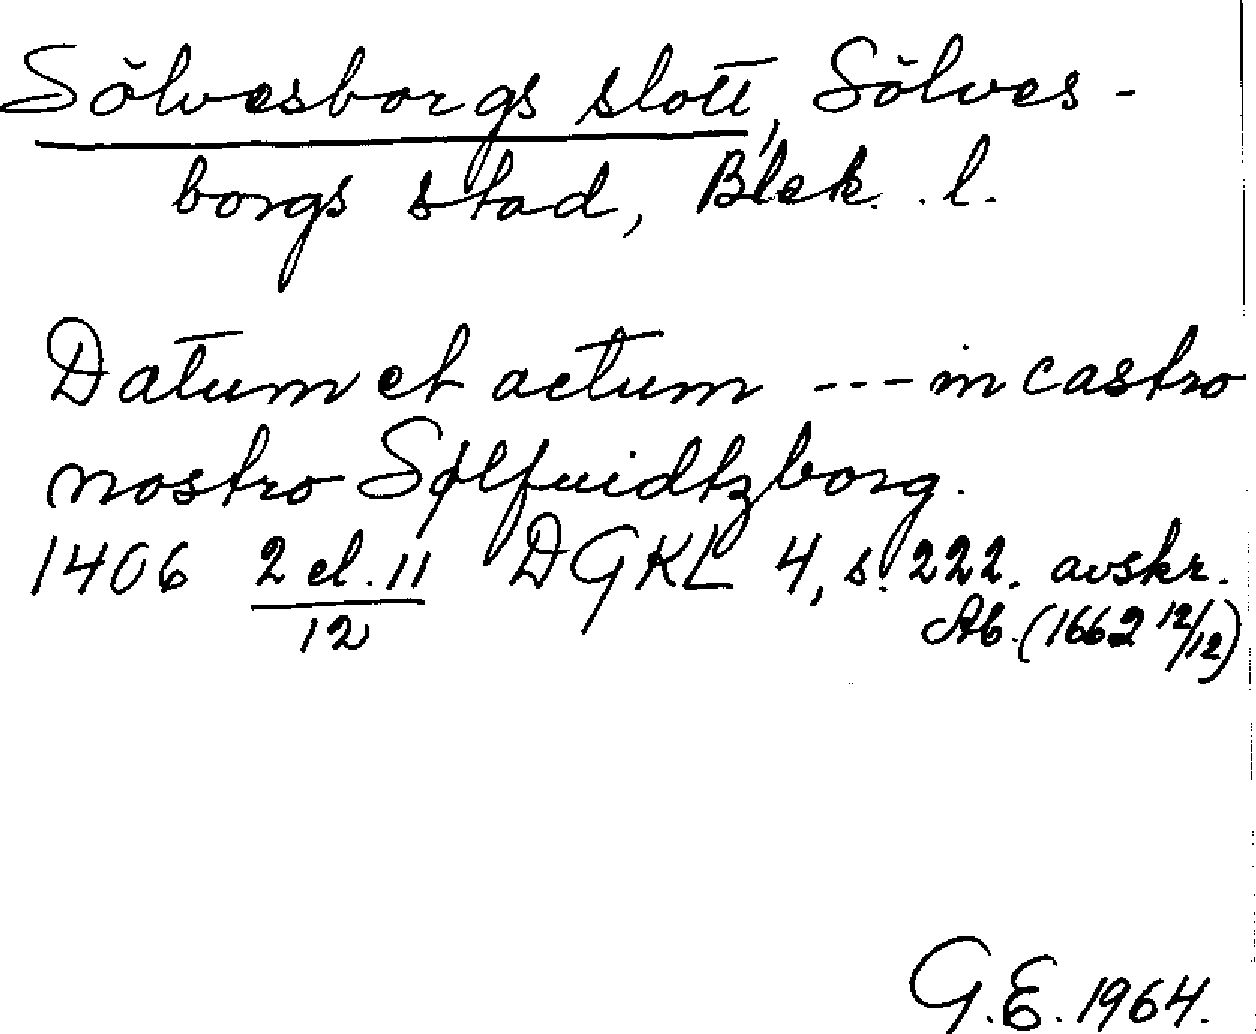 Sölvesborgs slott, Sölves-
borgs stad, Blek. l.
Datum et actum --- in castro
nostro Sølfuidtzborg.
1406 2 el. 11/12 DGKL 4, s. 222. avskr.
Ab. (1662 12/12)
G.E. 1964.